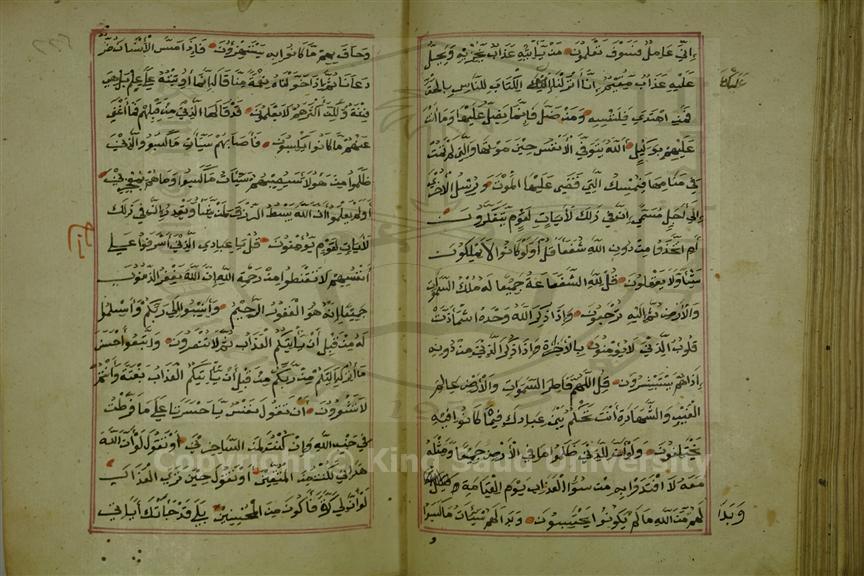 إني عامل فسوف تعلمون من يأتيه عذاب يخزيه ويحل
عليه عذاب مقيم إنا أنزلنا الكتاب للناس بالحق
عليك
فمن اهتدى فلنفسه ومن ضل فإنما يضل عليها وما أنت
عليهم بوكيل الله يتوفى الأنفس حين موتها والتي لم تمت
في منامها فيمسك التي قضى عليها الموت ويرسل الأخرى
إلى أجل مسمى إن في ذلك لآيات لقوم يتفكرون
أم اتخذوا من دون الله شفعاء قل أولو كانوا لا يملكون
شيئا ولا يعقلون قل لله الشفاعة جميعا له ملك السموات
والأرض ثم إليه ترجعون وإذا ذكر الله وحده اشمأزت
قلوب الذين لا يؤمنون بالآخرة وإذا ذكر الذين من دونه
إذا هم يستبشرون قل اللهم فاطر السموات والأرض عالم
الغيب والشهادة أنت تحكم بين عبادك فيما كانوا فيه
يختلفون ولو أن للذين ظلموا ما في الأرض جميعا ومثله
معه لافتدوا به من سوء العذاب يوم القيامة
وبدا
لهم من الله ما لم يكونوا يحتسبون وبدا لهم سيئات ما كسبوا
وحاق بهم ما كانوا به يستهزؤن فإذا مس الإنسان ضر
دعانا ثم إذا خولناه نعمة منا قال إنما أوتيته على علم بل هي
فتنة ولكن أكثرهم لا يعلمون قد قالها الذين من قبلهم فما أغنى
عنهم ما كانوا يكسبون فأصابهم سيئات ما كسبوا والذين
ظلموا من هؤلاء سيصيبهم سيئات ما كسبوا وما هم بمعجزين
أولم يعلموا أن الله يبسط الرزق لمن يشاء ويقدر إن في ذلك
لآيات لقوم يؤمنون قل يا عبادي الذين أسرفوا على
أنفسهم لا تقنطوا من رحمة الله إن الله يغفر الذنوب
جميعا إنه هو الغفور الرحيم وأنيبوا إلى ربكم وأسلموا
له من قبل أن يأتيكم العذاب ثم لا تنصرون واتبعوا أحسن
ما أنزل إليكم من ربكم من قبل أن يأتيكم العذاب بغتة وأنتم
لا تشعرون أن تقول نفس يا حسرتا على ما فرطت
في جنب الله وإن كنت لمن الساخرين أو تقول لو أن الله
هداني لكنت من المتقين أو تقول حين ترى العذاب
لو أن لي كرة فأكون من المحسنين بلى قد جاءتك آياتي
Copyright © King Saud University